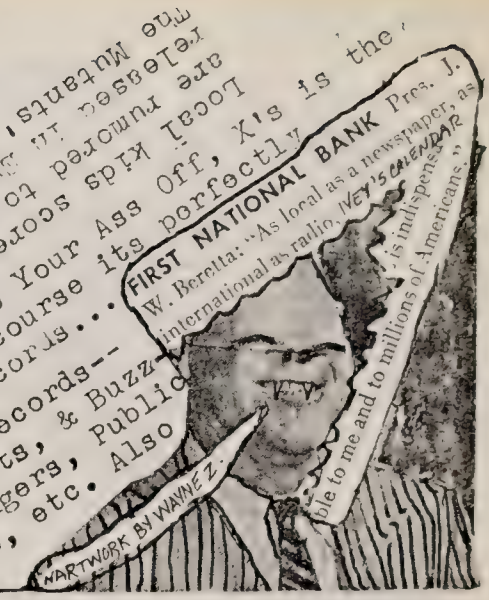 The Mutants,
released in
are rumored to
Local kids score
Your Ass Off, X's is the
course its perfectly
cords...
ecords--
ts, & Buzz-
gers, Public
, etc. Also
FIRST NATIONAL BANK Pres. J.
W. Beretta: "As local as a newspaper, as
international as radio, IVEY'S CALENDAR
is indispensa
ble to me and to millions of Americans."
NARTWORK BY WAYNE Z.